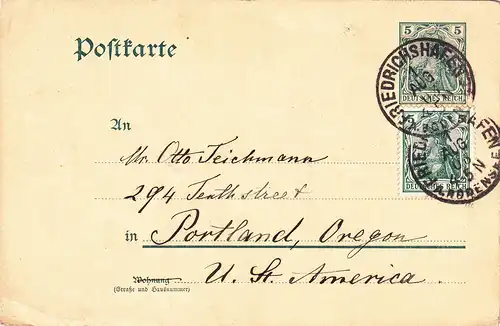 5 5
Postkarte
FRIEDRICHSHAFEN
AUG
DEUTSCHES REICH
FRIEDRICHSHAFEN
BODENSEE
An
Mr. Otto Teichmann
294 Tenth street
in Portland, Oregon
Wohnung
U. St. America.
(Straße und Hausnummer)